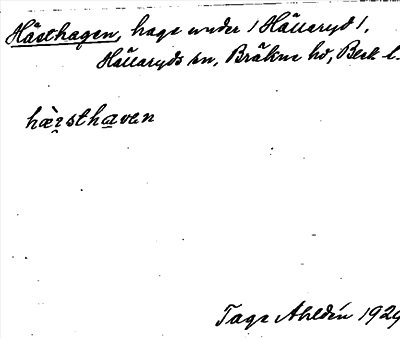 Hästhagen, hage under / Hällaryd /,
Hällaryds sn, Bräkne hd, Blek. l.
hæ̀ṣsthaven
Tage Ahldén 1929